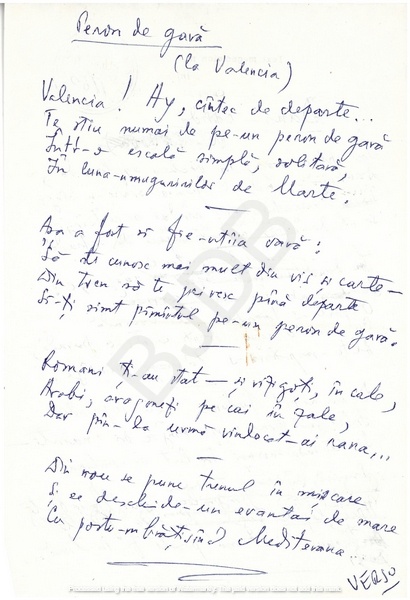 Peron de gară
(la Valencia)
Valencia! Ay, cîntec de departe...
Te știu numai de pe-un peron de gară
Într-o escală simplă, solitară,
În luna-mugurilor de Marte.
Așa a fost să fie-ntîia vară:
Să te cunosc mai mult din vis și carte—
Din tren să te privesc pînă departe
Să-ți simt pămîntul pe-un peron de gară.
Romani ți-au stat— și vizigoți, în cale,
Arabi, aragonezi pe cai în zale,
Dar pîn-la urmă vindecat-ai rana...
Din nou se pune trenul în mișcare
Și se deschide-un evantai de mare
Cu portu-mbrățișînd Mediterana...
VERSO
BJDB